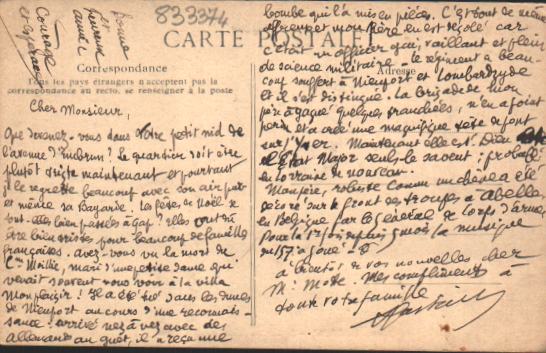 Bonne
et
heureuse
année
Courage
et espérance
833374
CARTE POSTALE
Correspondance
Tous les pays étrangers n'acceptent pas la
correspondance au recto, se renseigner à la poste
Adresse
Cher Monsieur,
Que devenez-vous dans votre petit nid de
l'avenue d'Embrun? Le quartier doit être
plutôt triste maintenant et pourtant
je le regrette beaucoup avec son air pur
et même sa Bayarde. Les fêtes de Noël se
sont-elles bien passées à Gap? Elles ont dû
être bien tristes pour beaucoup de familles
françaises. Avez-vous vu la mort du
Cne mari d'une petite dame qui
venait souvent vous voir à la villa
Monplaisir! Il a été tué dans les dunes
de Nieuport au cours d'une reconnais-
sance. Arrivé nez à nez avec des
allemands au guet, il a reçu une
bombe qui l'a mis en pièces. C'est dont de même
affreux et mon père en est désolé car
c'était un officier gai, vaillant et plein
de science militaire. Le régiment a beau-
coup souffert à Nieuport et Lombartzyde
et il s'est distingué. La brigade de mon
père a gagné quelques tranchées, n'en a point
perdu et a créé une magnifique tête de pont
sur l'Yser. Maintenant elle est Dieu
et l'État Major seuls le savent: probablt
en Lorraine de nouveau.
Mon père, robuste comme un chêne a été
décoré sur le front des troupes à
en Belgique par le Général de Corps d'armée.
Pour la 1re fois depuis 5 mois la musique
du 157 a joué
à bientôt de vos nouvelles, cher
M. Motte. Mes compliments à
toute votre famille